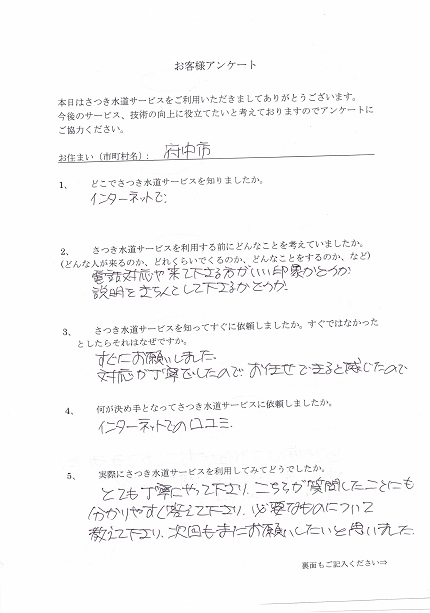 お客様アンケート
本日はさつき水道サービスをご利用いただきましてありがとうございます。
今後のサービス、技術の向上に役立てたいと考えておりますのでアンケートに
ご協力ください。
お住まい（市町村名）： 府中市
1、 どこでさつき水道サービスを知りましたか。
インターネットで、
2、 さつき水道サービスを利用する前にどんなことを考えていましたか。
(どんな人が来るのか、どれくらいでくるのか、どんなことをするのか、など)
電話対応や来て下さる方がいい印象かどうか
説明をきちんとして下さるかどうか。
3、 さつき水道サービスを知ってすぐに依頼しましたか。すぐではなかった
としたらそれはなぜですか。
すぐにお願いしました。
対応が丁寧でしたので、お任せできると感じたので
4、 何が決め手となってさつき水道サービスに依頼しましたか。
インターネットでの口コミ。
5、 実際にさつき水道サービスを利用してみてどうでしたか。
とても丁寧にやって下さり、こちらが質問したことにも
分かりやすく答えて下さり、必要なものについて
教えて下さり、次回もまたお願いしたいと思いました。
裏面もご記入ください⇒